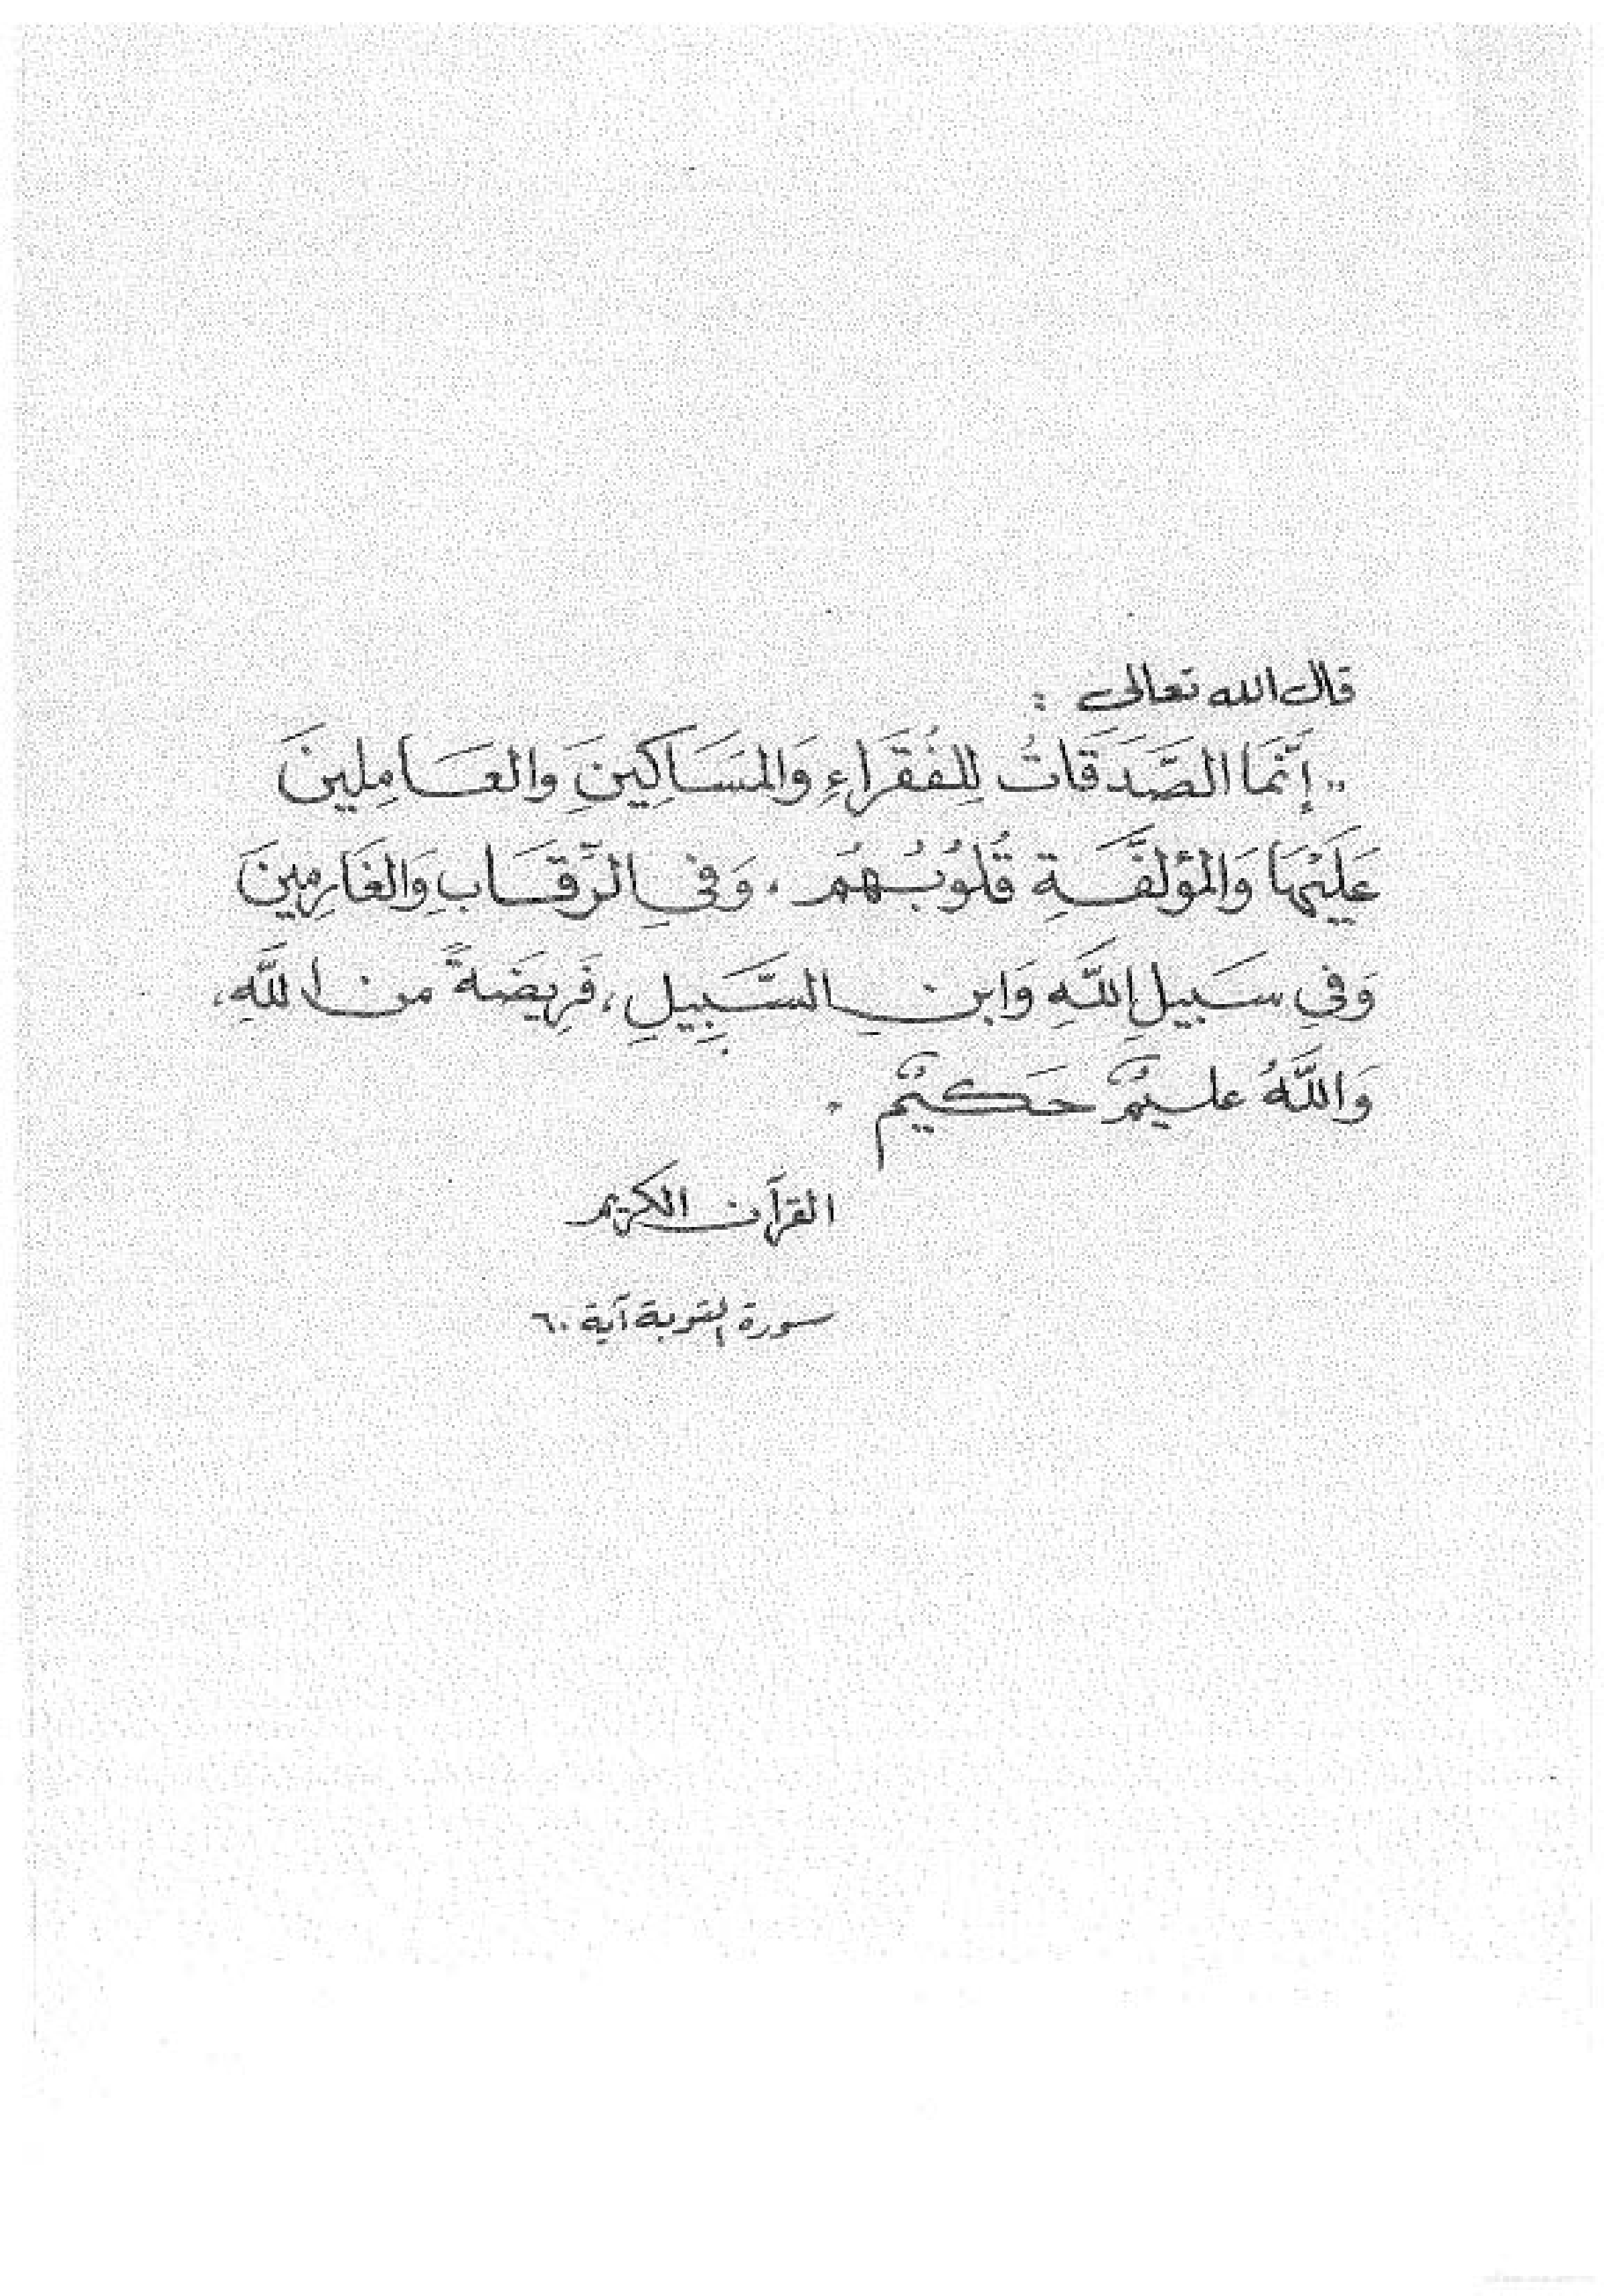 قال الله تعالى :
" إِنَّمَا الصَّدَقَاتُ لِلْفُقَرَاءِ وَالمَسَاكِينَ وَالعَامِلِينَ
عَلَيْهَا وَالمُؤَلَّفَةِ قُلُوبُهُمْ ، وَفِي الرِّقَابِ وَالغَارِمِينَ
وَفِي سَبِيلِ اللَّهِ وَابنِ السَّبِيلِ ، فَرِيضَةً من اللَّهِ ،
وَاللَّهُ عليمٌ حَكيمٌ .
القرآن الكريم
سورة التوبة آية ٦٠